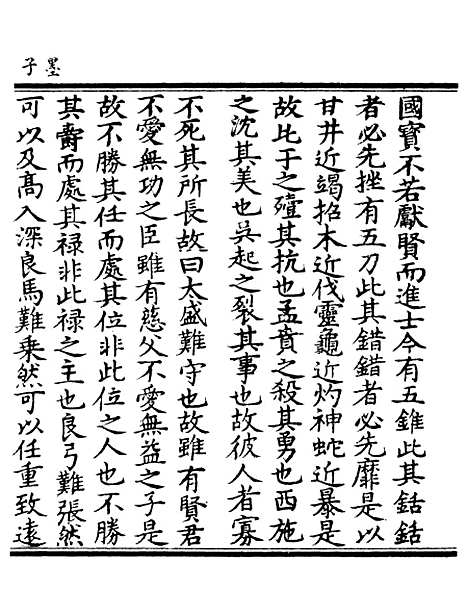 墨子
國寶不若獻賢而進士今有五錐此其銛銛
者必先挫有五刀此其錯錯者必先靡是以
甘井近竭招木近伐靈龜近灼神蛇近暴是
故比于之殪其抗也孟賁之殺其勇也西施
之沈其美也吳起之裂其事也故彼人者寡
不死其所長故曰太盛難守也故雖有賢君
不愛無功之臣雖有慈父不愛無益之子是
故不勝其任而處其位非此位之人也不勝
其壽而處其禄非此禄之主也良弓難張然
可以及髙入深良馬難乗然可以任重致遠